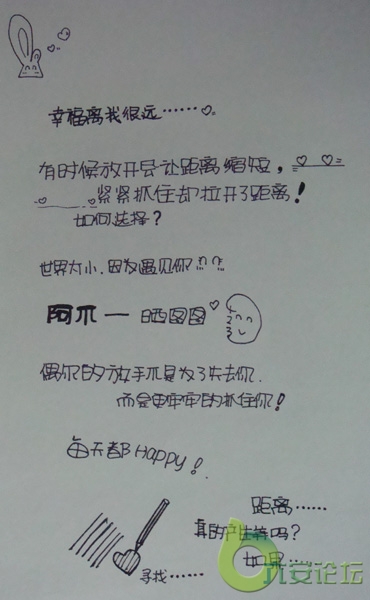 幸福离我很远……
有时候放开会让距离缩短，
紧紧抓住却拉开了距离！
如何选择？
世界太小.因为遇见你
阿木一 晒图图
偶尔的放手不是为了失去你.
而会更牢牢的抓住你！
每天都Happy！
距离……
真的产生美吗？
如果……
寻找……
六安论坛